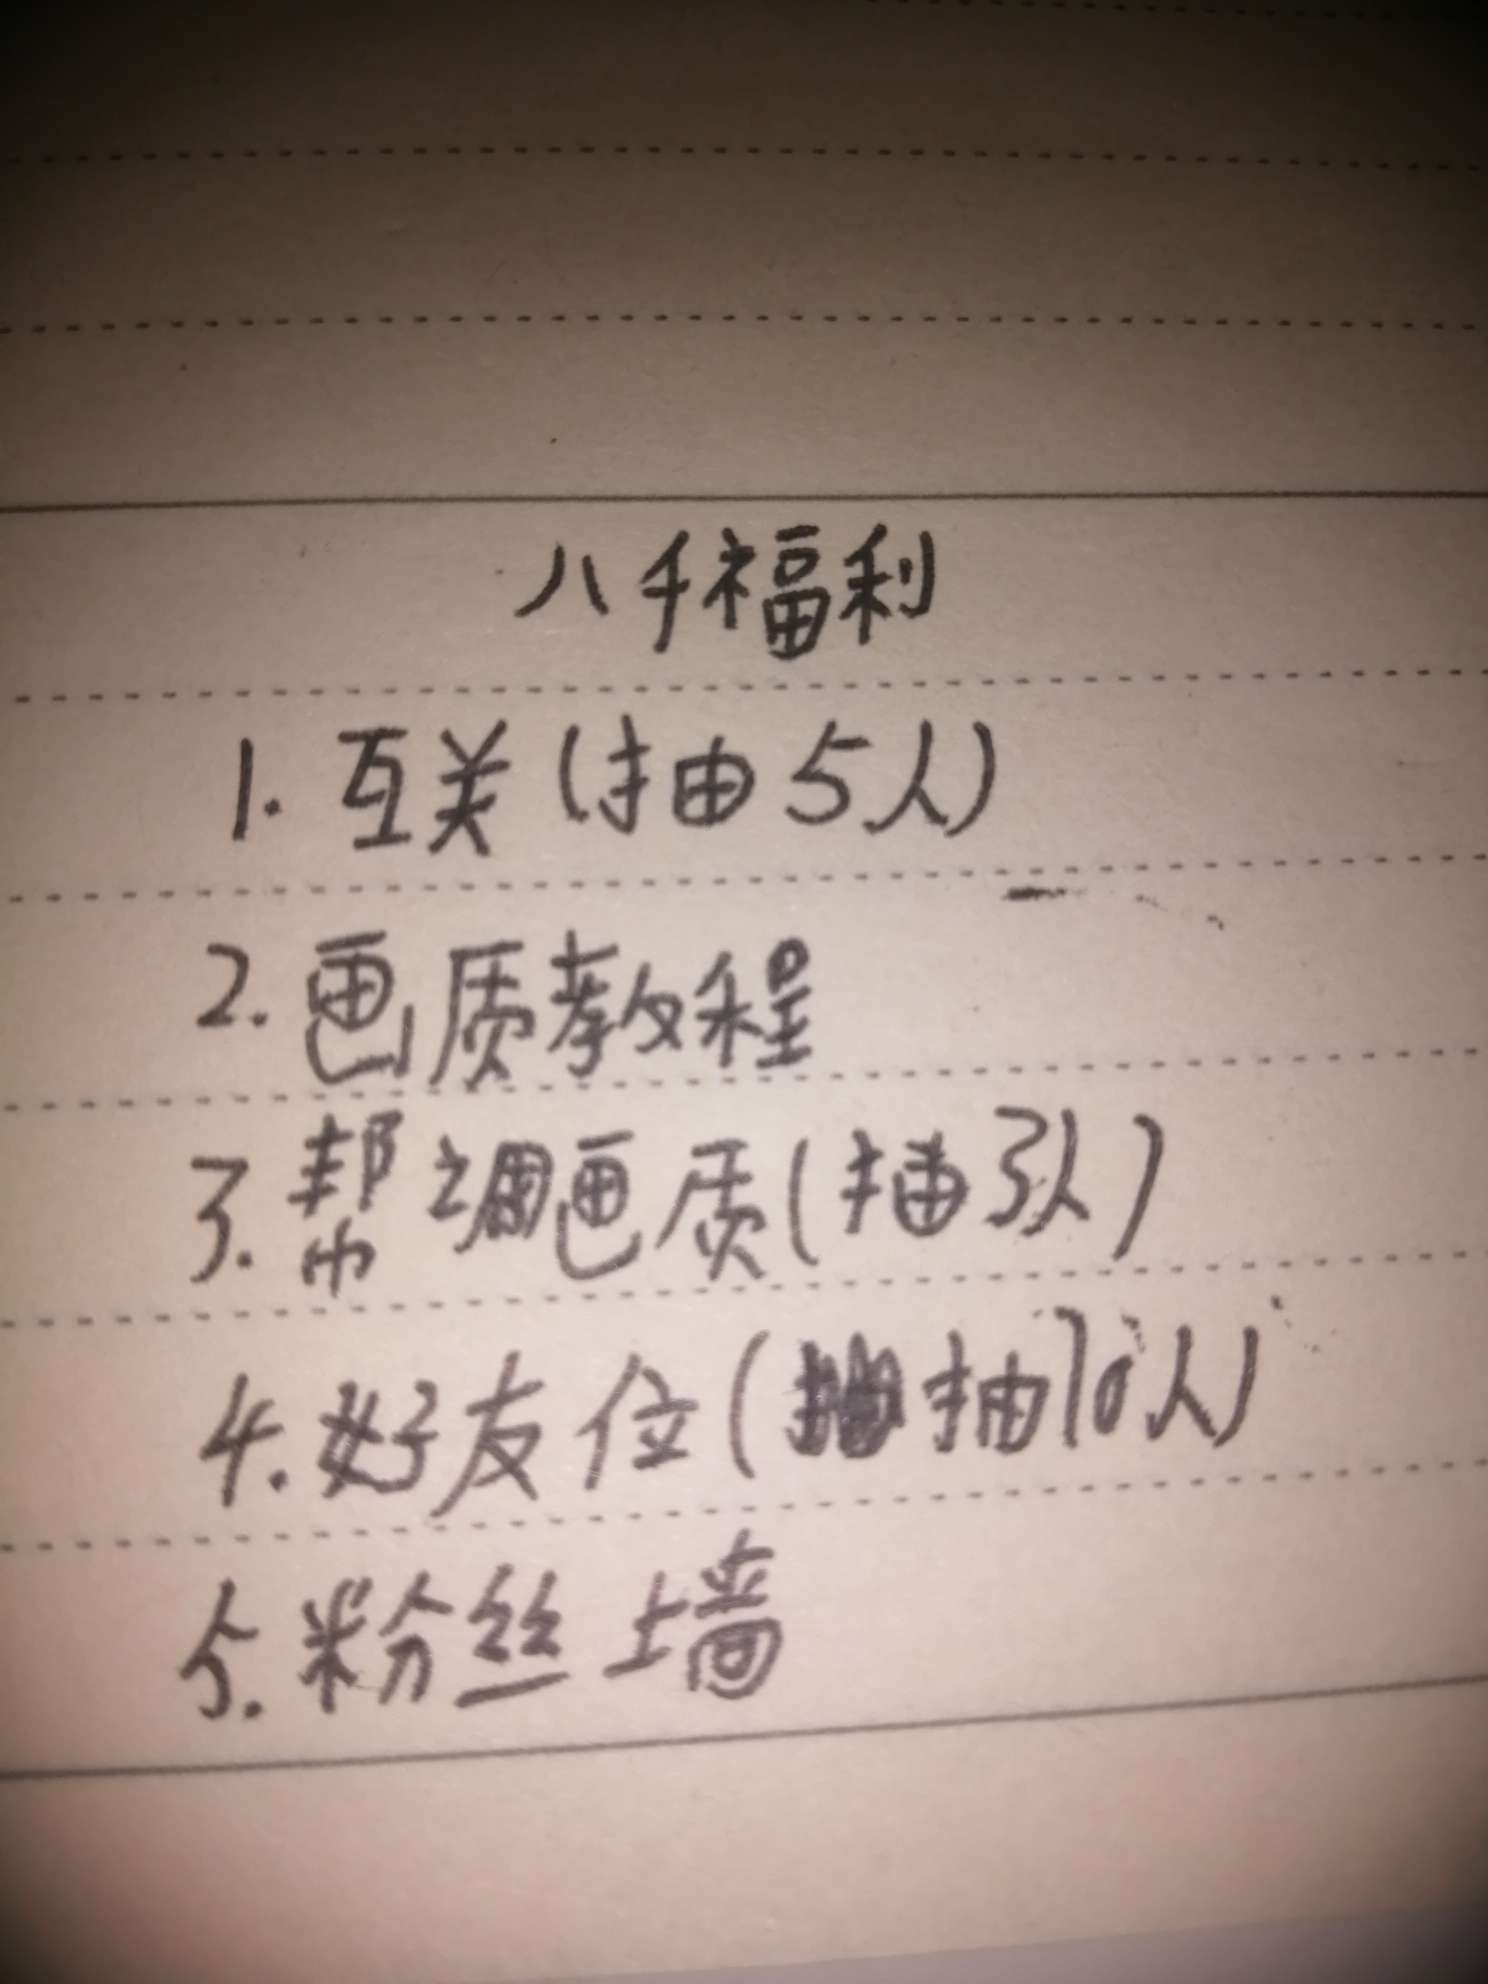 八千福利
1. 互关(抽5人)
2. 画质教程
3. 帮调画质(抽3人)
4. 好友位(抽10人)
5. 粉丝墙